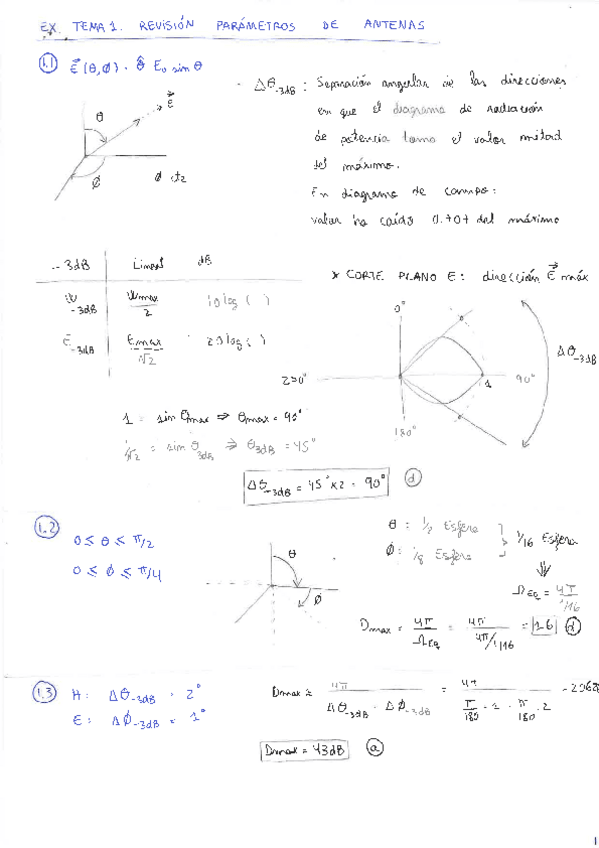 EX. TEMA 1. REVISIÓN PARÁMETROS DE ANTENAS
1.1 E(θ,ϕ) = θ̂ E₀ sin θ
- Δθ-3dB : Separación angular de las direcciones
en que el diagrama de radiación
de potencia toma el valor mitad
del máximo.
En diagrama de campo:
valor ha caído 0.707 del máximo
θ
E
ϕ
ϕ cte
-3dB Lineal dB
-3dB Umax/2 10 log ( )
E-3dB Emax/√2 20 log ( )
* CORTE PLANO E: dirección E máx
0°
90°
180°
1
Δθ-3dB
1 = sin θmax ⇒ θmax = 90°
1/√2 = sin θ3dB ⇒ θ3dB = 45°
Δθ-3dB = 45° x 2 = 90° d
1.2
0 ≤ θ ≤ π/2
0 ≤ ϕ ≤ π/4
θ
ϕ
θ : 1/2 Esfera
ϕ : 1/8 Esfera
1/16 Esfera
ΩEQ = 4π/16
Dmax = 4π/ΩEQ = 4π/(4π/16) = 16 d
1.3 H: Δθ-3dB = 2°
E: Δϕ-3dB = 1°
Dmax ≃ 4π/(Δθ-3dB · Δϕ-3dB) = 4π/(π/180 · 1 · π/180 · 2)
Dmax = 43dB a
1